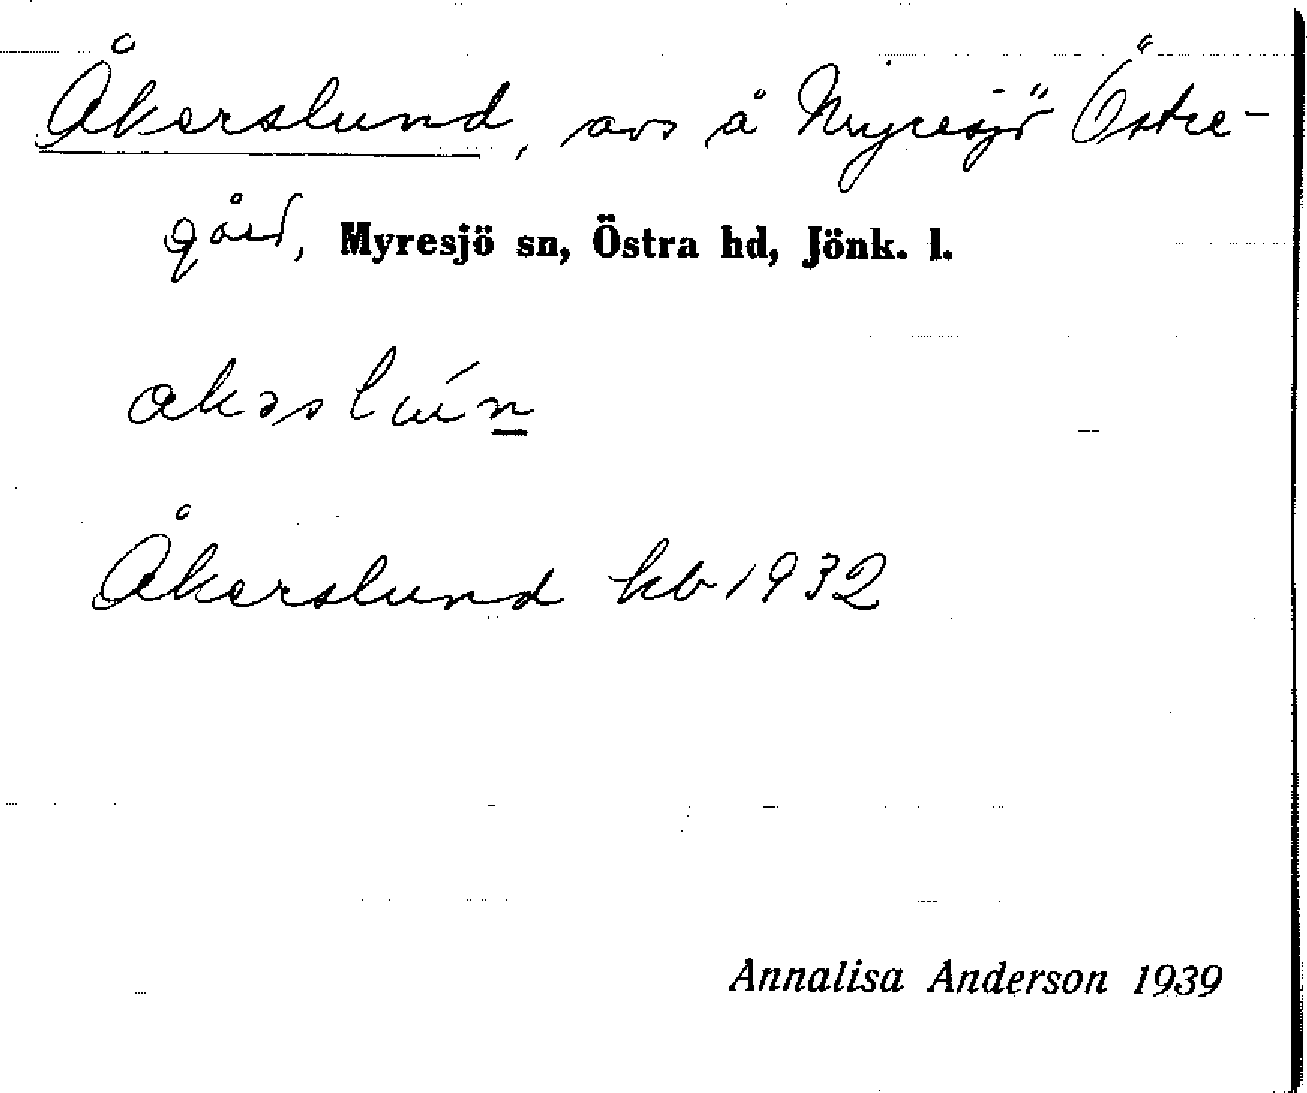 Åkerslund, avs å Myresjö Östre-
gård, Myresjö sn, Östra hd, Jönk. l.
akəslún
Åkerslund kb 1932
Annalisa Anderson 1939